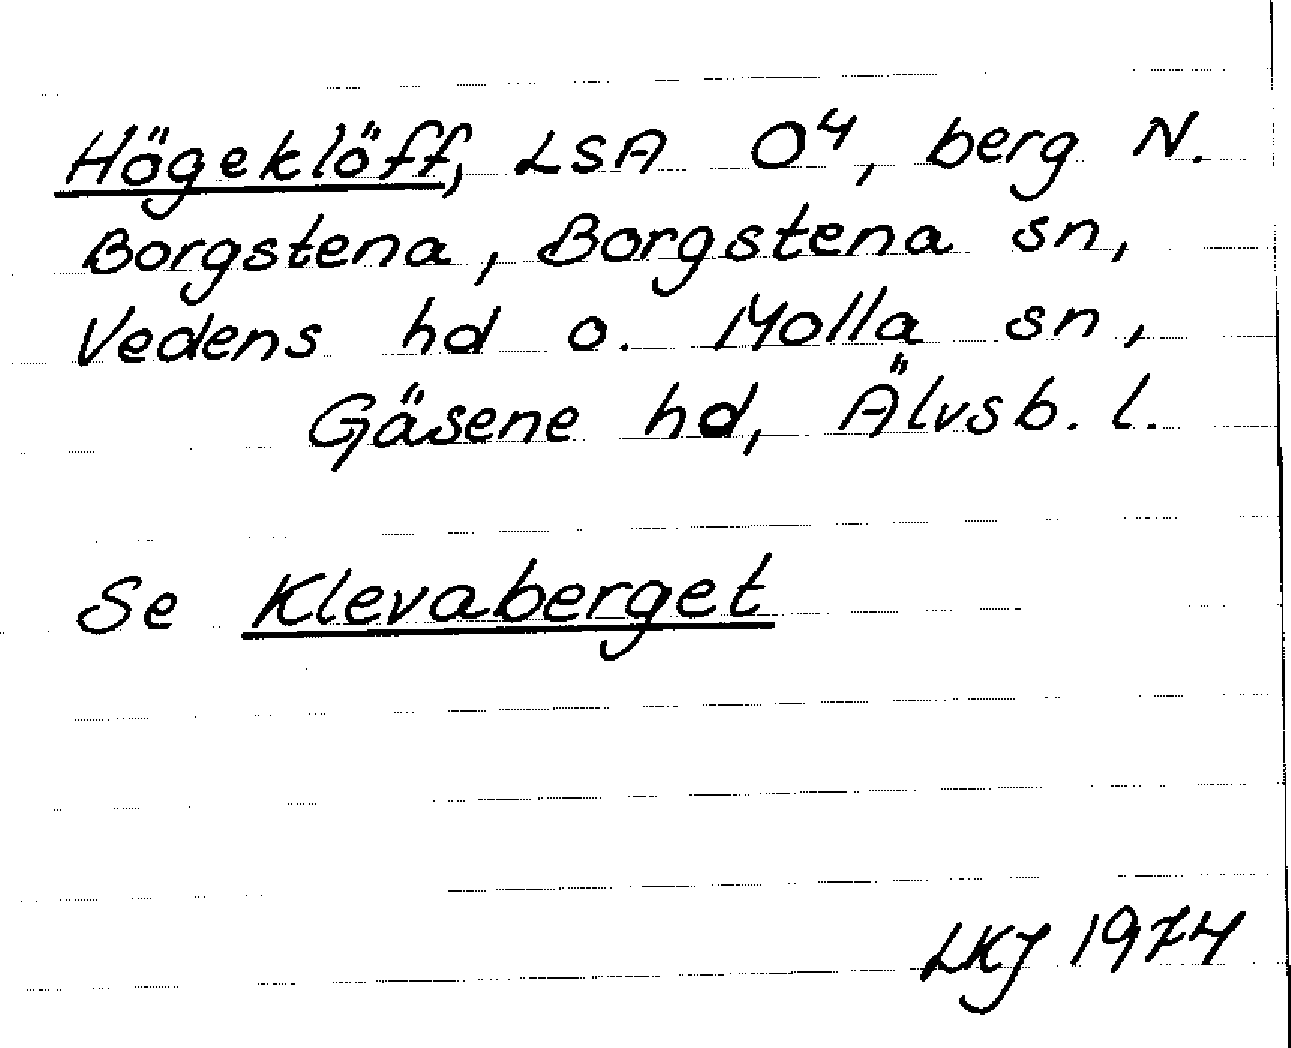 Högeklöff, LSA O⁴, berg N.
Borgstena, Borgstena sn,
Vedens hd o. Molla sn,
Gäsene hd, Älvsb. l.
Se Klevaberget
LKJ 1974